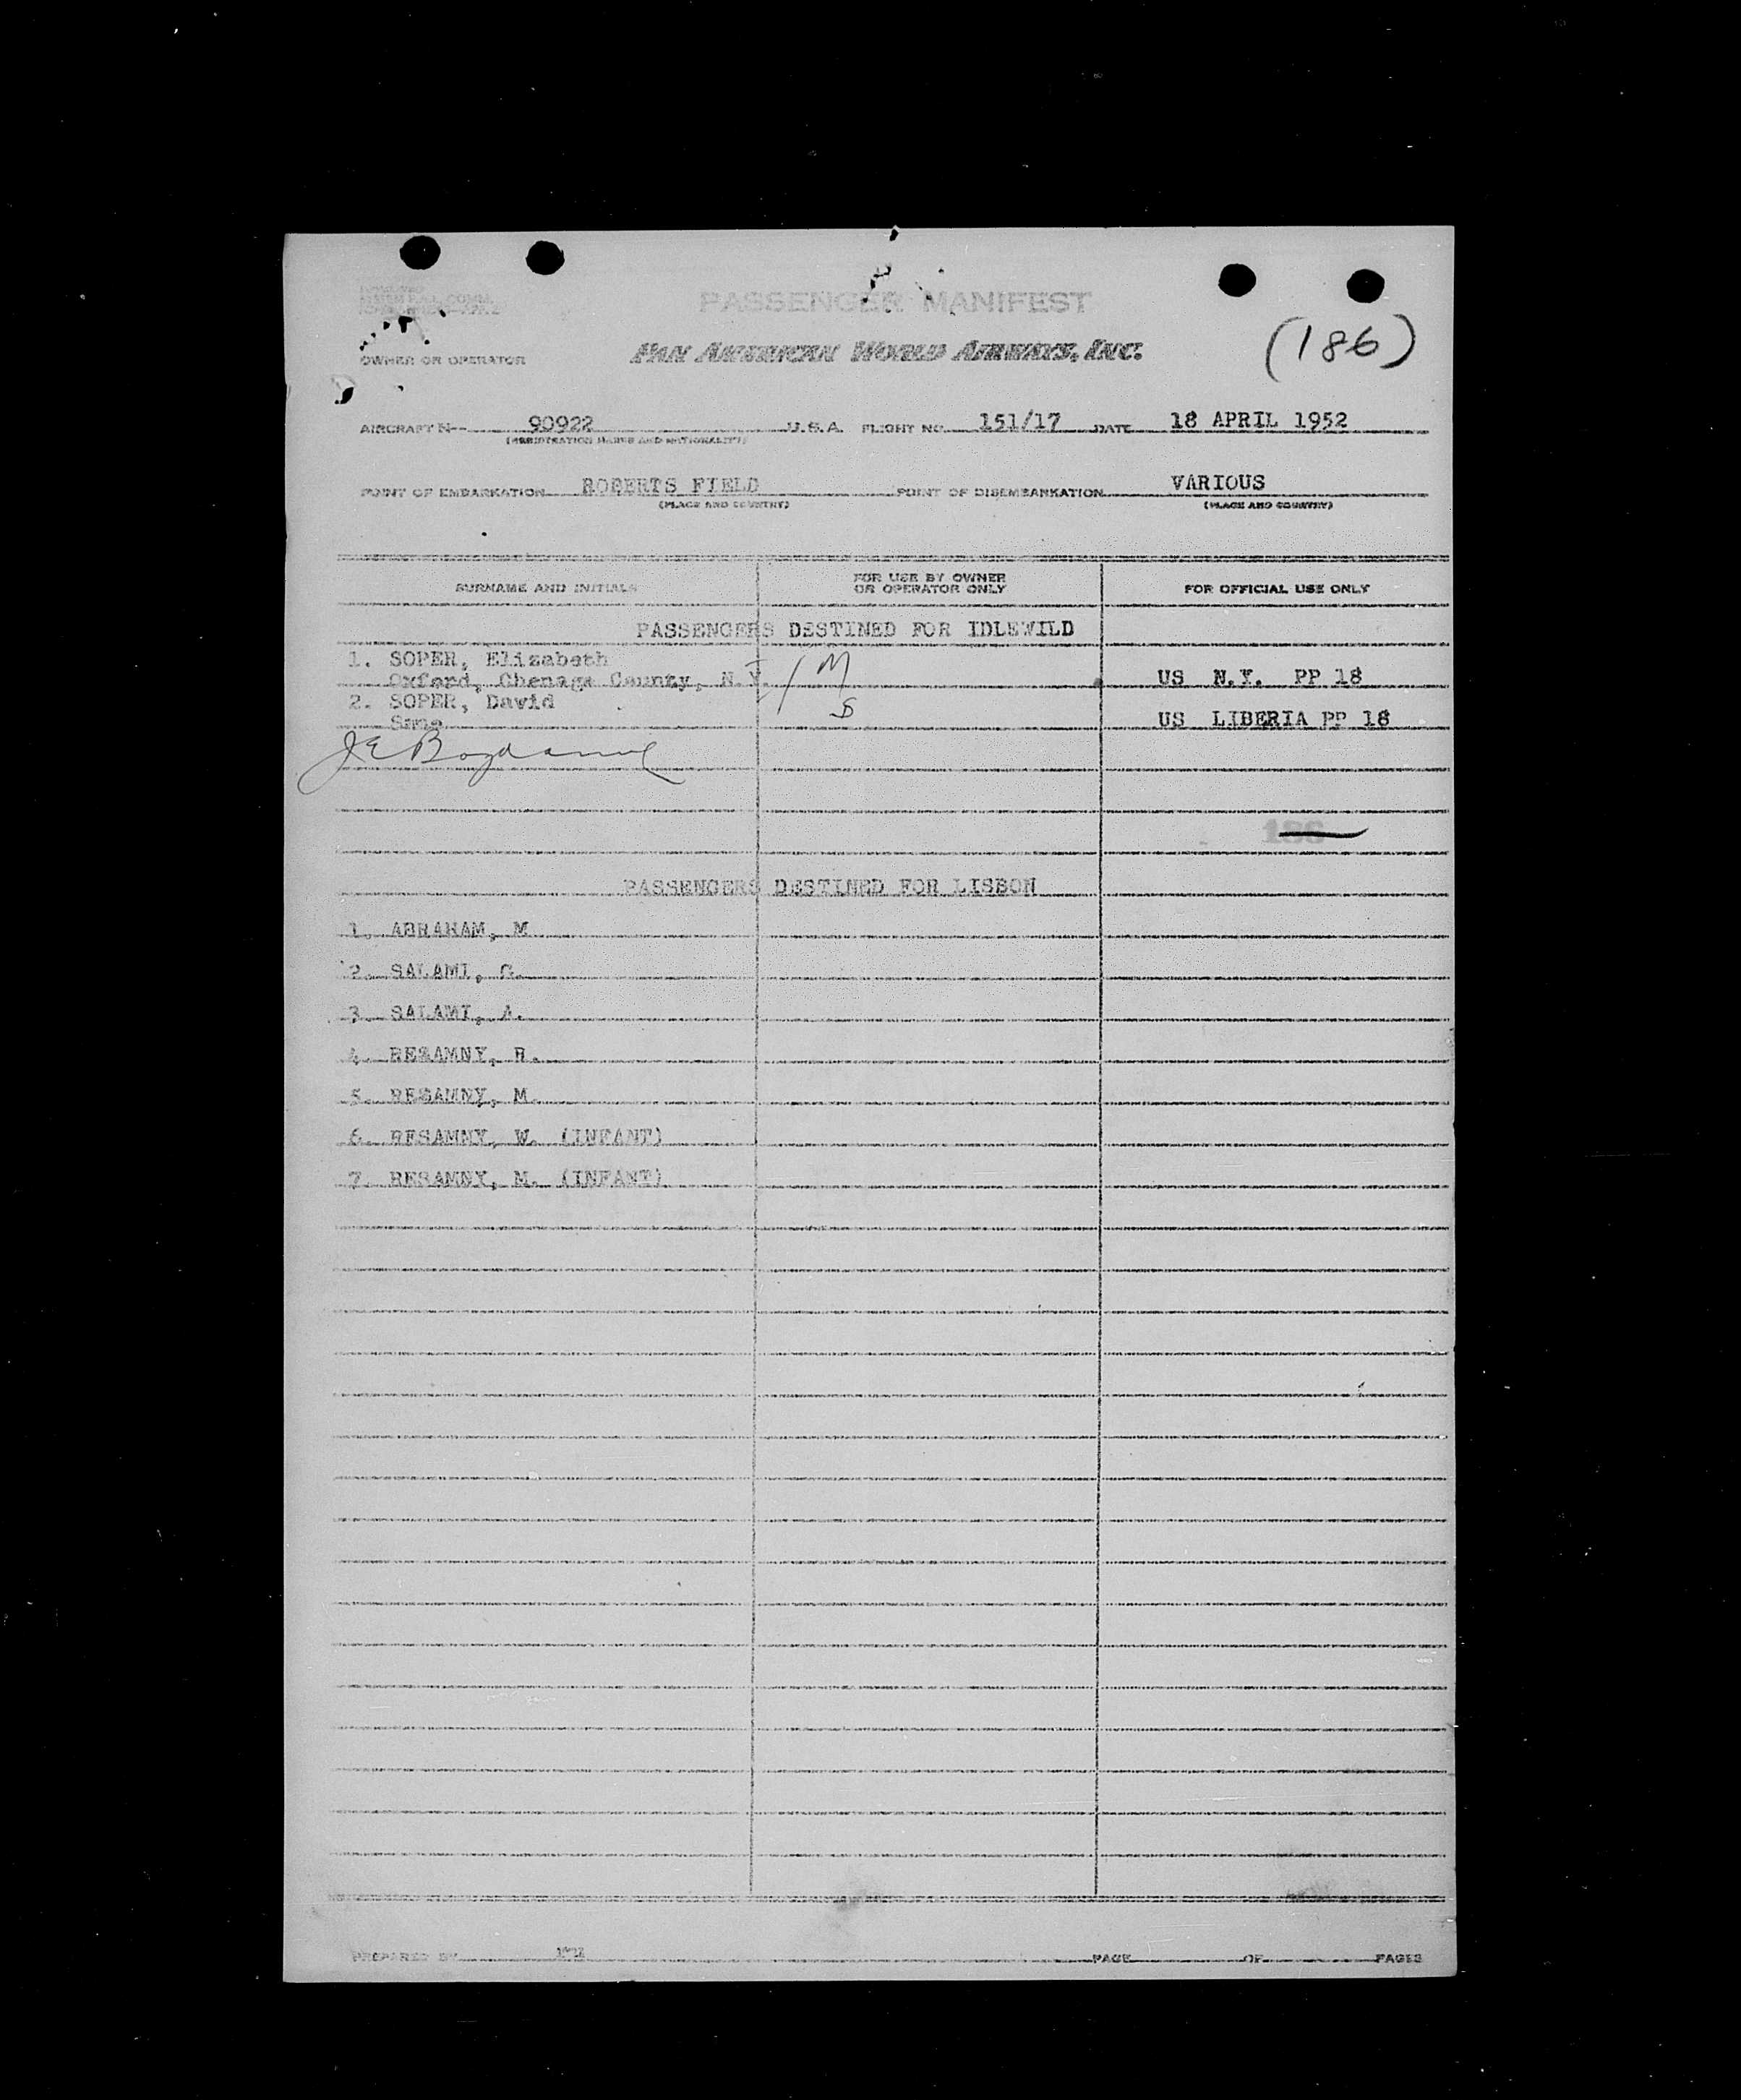 PASSENGER MANIFEST
(186)
OWNER OR OPERATOR PAN AMERICAN WORLD AIRWAYS, INC.
AIRCRAFT N-- 90922 U.S.A. FLIGHT NO. 151/17 DATE 18 APRIL 1952
(REGISTRATION MARKS AND NATIONALITY)
POINT OF EMBARKATION ROBERTS FIELD POINT OF DISEMBARKATION VARIOUS
(PLACE AND COUNTRY) (PLACE AND COUNTRY)
SURNAME AND INITIALS FOR USE BY OWNER OR OPERATOR ONLY FOR OFFICIAL USE ONLY
PASSENGERS DESTINED FOR IDLEWILD
1. SOPER, Elizabeth
Oxford, Chenaga County, N.Y. M US N.Y. PP 18
2. SOPER, David S
Sme US LIBERIA PP 18
186
PASSENGERS DESTINED FOR LISBON
1. ABRAHAM, M
2. SALAMI, G.
3. SALAMI, A.
4. RESAMNY, H.
5. RESAMNY, M.
6. RESAMNY, W. (INFANT)
7. RESAMNY, M. (INFANT)
PREPARED BY PAGE OF PAGES